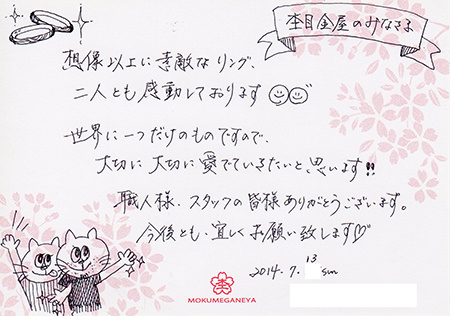 杢目金屋のみなさま
想像以上に素敵なリング、
二人とも感動しております
世界に一つだけのものですので、
大切に大切に愛でていきたいと思います!!
職人様、スタッフの皆様ありがとうございます。
今後とも、宜しくお願い致します♡
2014.7.13 sun
MOKUMEGANEYA